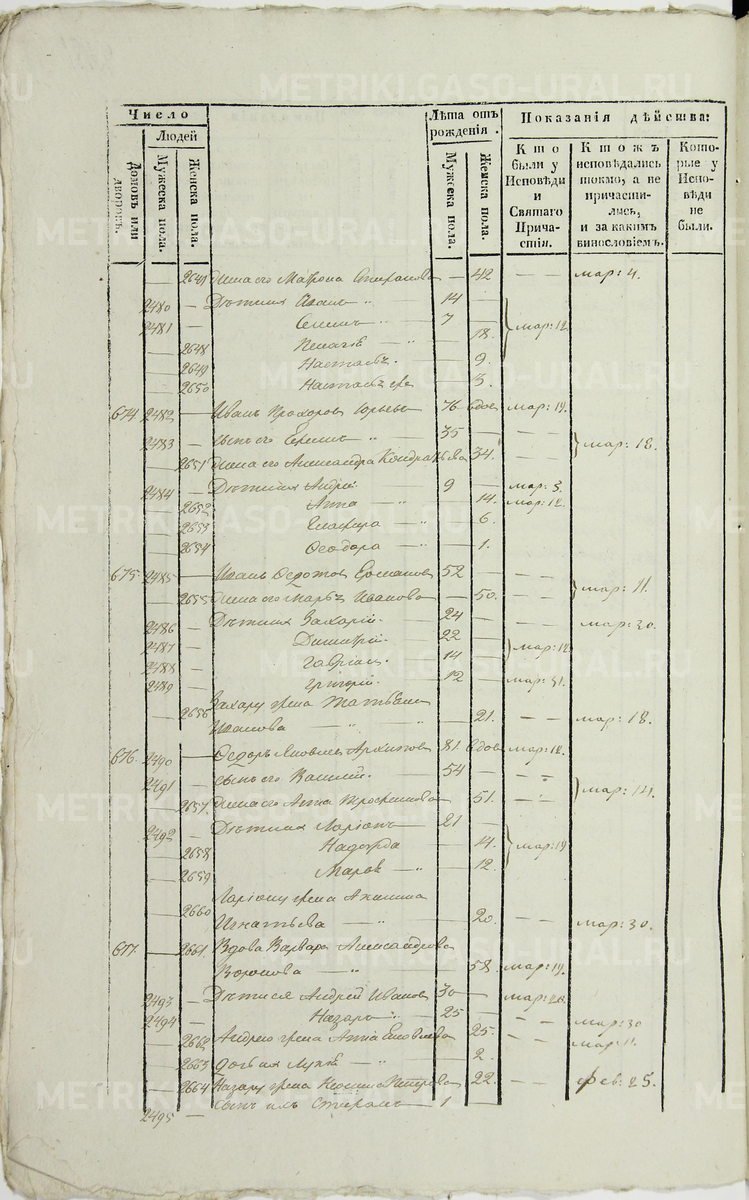 METRIKI.GASO-URAL.RU
Число
Людей
Домовъ или дворовъ.
Мужеска пола.
Женска пола.
Лѣта отъ рожденія.
Мужеска пола.
Женска пола.
Показанія дѣйства:
Кто были у Исповѣди и Святаго Причастія.
Ктожъ исповѣдались токмо, а не причастились, и за какимъ винословіемъ.
Которые у Исповѣди не были.
— 2647 жена его Матрона — 42 — — мар: 4.
2480 — Дѣти ихъ Иванъ „ 14 —
2481 — „ 7 — мар: 12
— 2648 — „ — 18.
— 2649 — 9.
— 2650 — 3.
674 2482 — Иванъ Прохоровъ 76 вдов мар: 19.
2483 — сынъ его „ 35 — — мар: 18.
— 2651 жена его Александра — 34. — —
2484 — Дѣти ихъ Андрей 9 — мар: 5.
— 2652 Анна — „ — 14. мар: 12.
— 2653 Глафира — „ — 6.
— 2654 Ѳеодора — „ — 1.
675 2485 — Иванъ Ѳедотовъ 52 — — — мар: 11.
— 2655 жена его Марья Иванова — 50. — —
2486 — Дѣти ихъ Захарій. 24 — — — мар: 30.
2487 — Димитрій. 22 —
2488 — Гавріилъ. 14 — мар: 12
2489 — Григорій. 12 — мар: 31.
Захару жена Татьяна
— 2656 Иванова — „ — „ — 21. — — мар: 18.
676. 2490 — Ѳедоръ Яковлевъ Архиповъ 81. вдов мар: 12.
2491 — сынъ его Василій. 54 — — мар: 14.
— 2657. жена его Анна — 51. — —
2492 — Дѣти ихъ Ларіонъ 21 —
— 2658 Надежда — 14. мар: 19
— 2659 Мавра — „ — 12.
Ларіону жена Акилина
— 2660 Игнатьева — „ — 20. — — мар: 30.
677. — 2661. Вдова Варвара Александрова
— „ — 58 мар: 19.
2493 — Дѣти ея Андрей Ивановъ 30 — мар: 20.
2494 — Назаръ „ 25 — — — мар: 30
— 2662 Андрею жена Анна Яковлева — 25. — — мар: 11.
— 2663 дочь ихъ — „ — 2.
— 2664 Назару жена Ксенія Петрова — 22. — — фев: 25.
2495 — сынъ ихъ 1 —